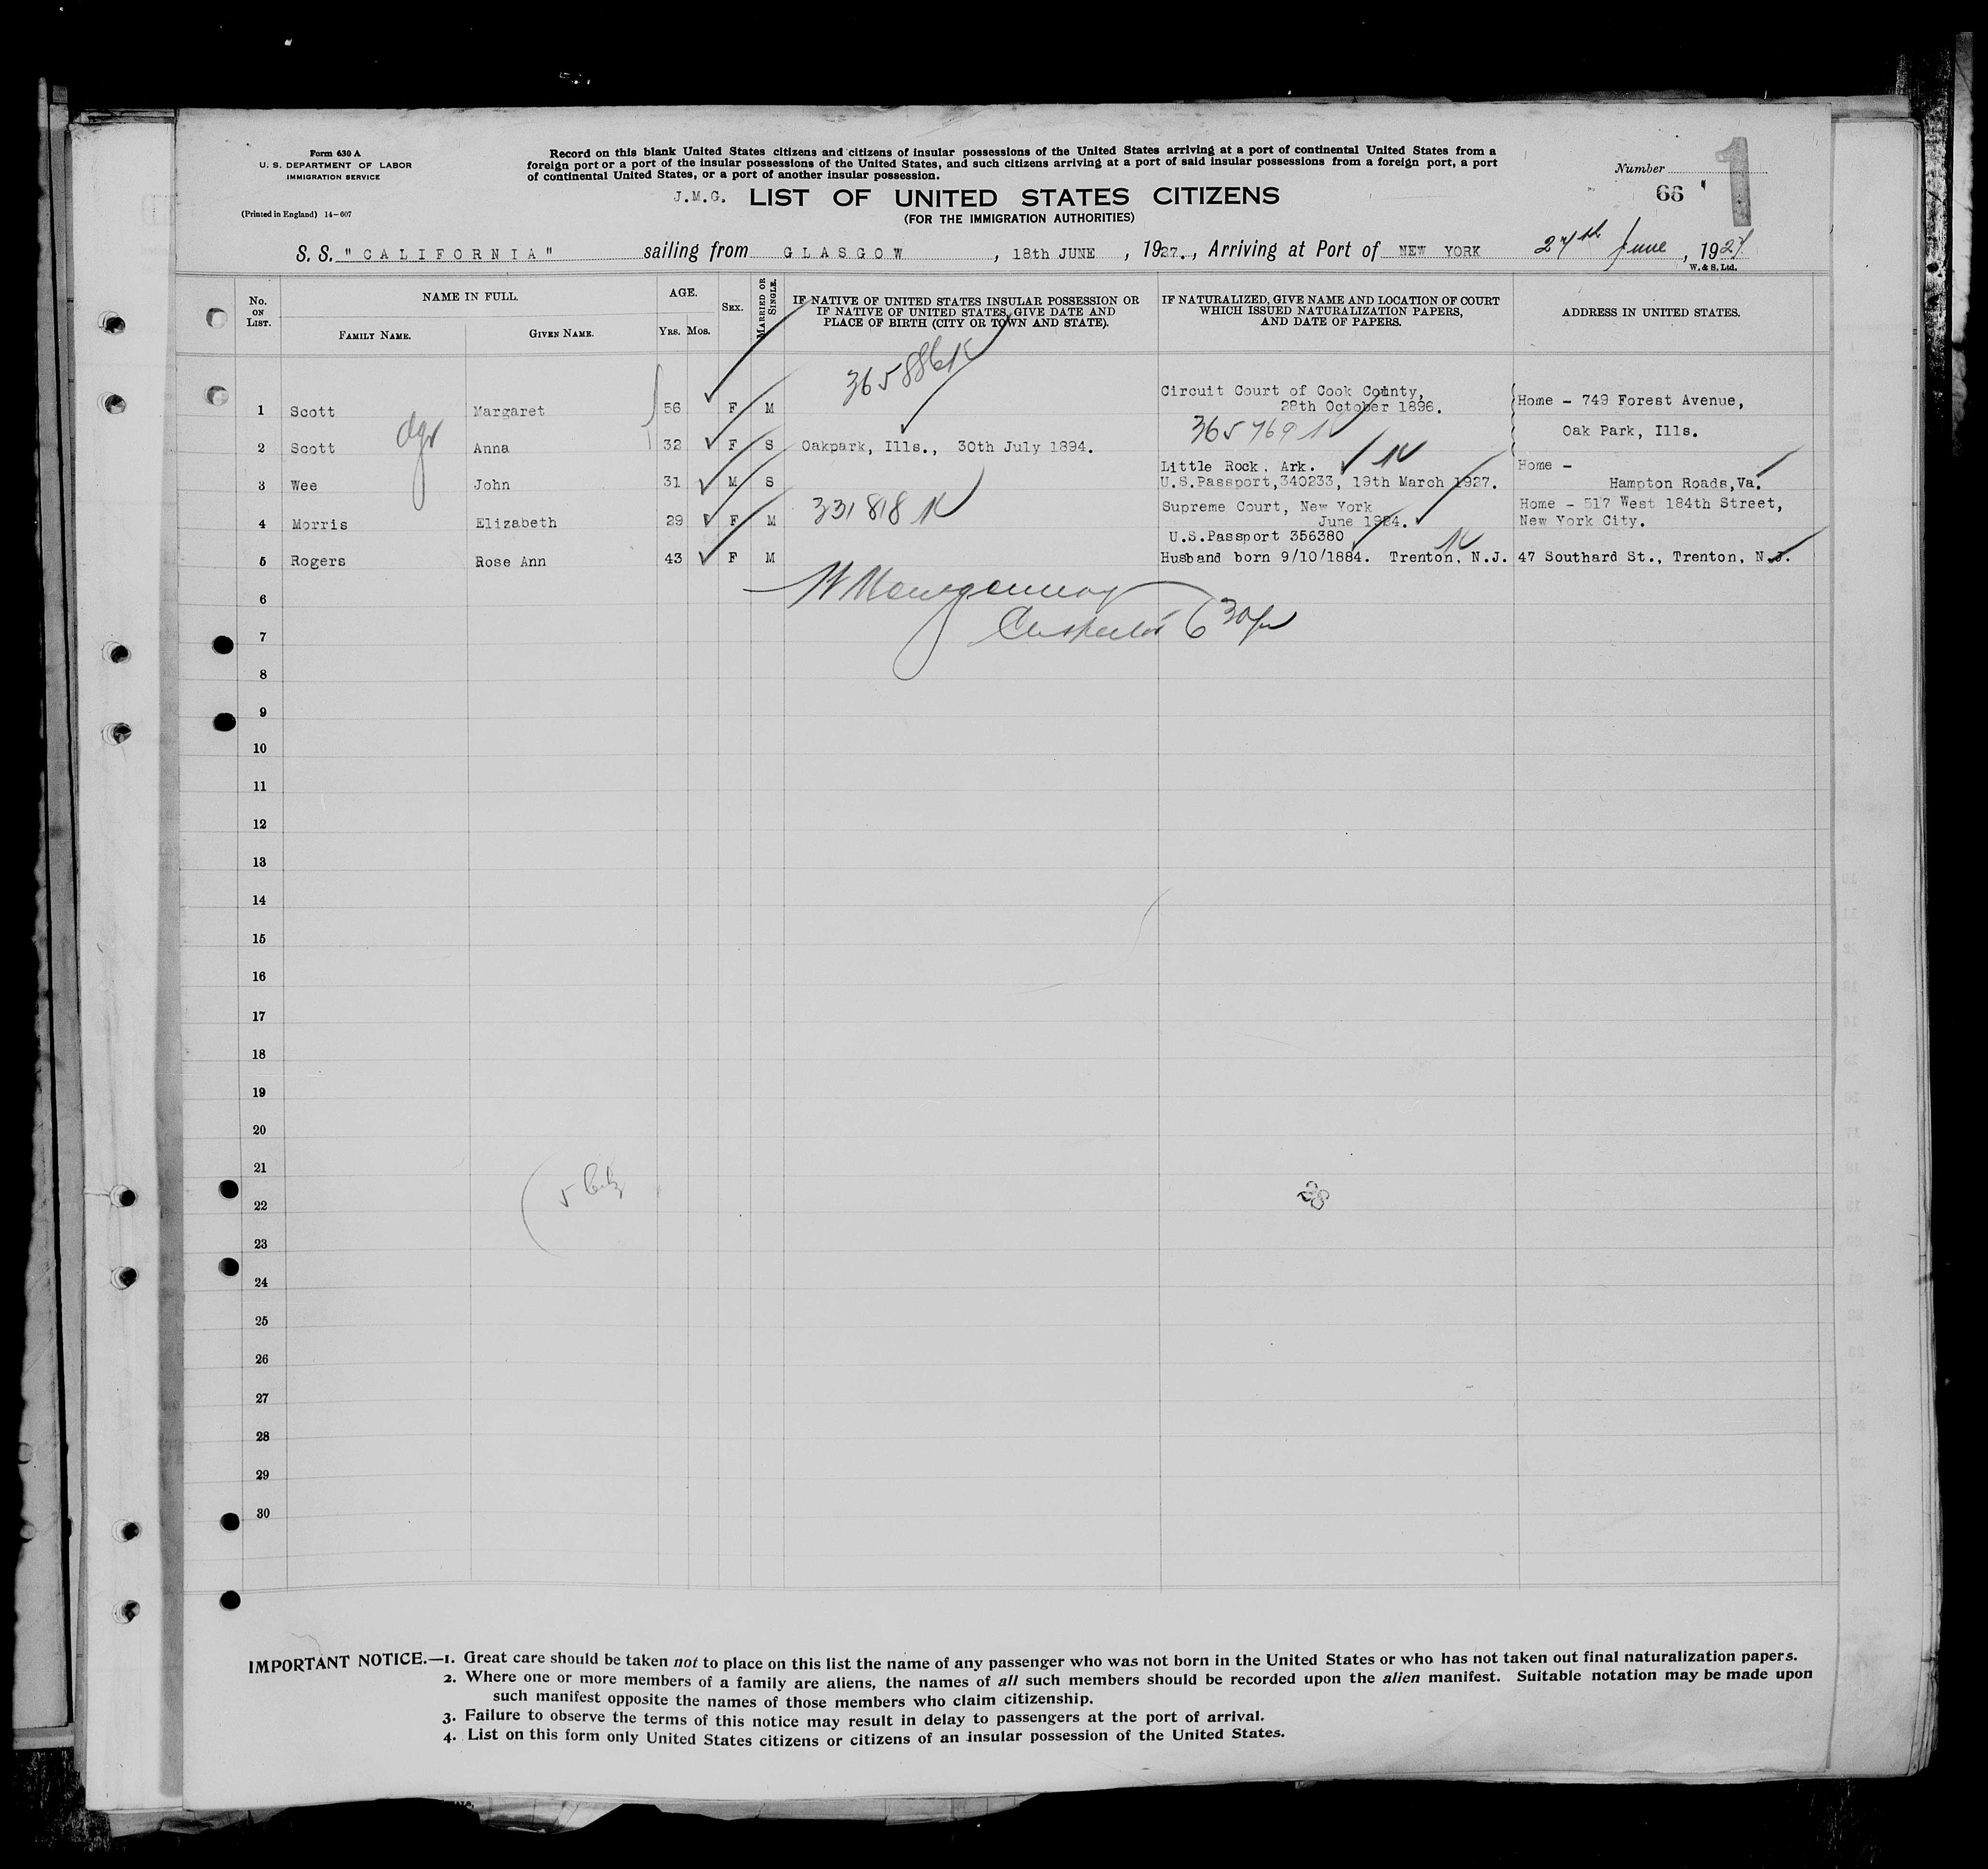 Form 630 A
U. S. DEPARTMENT OF LABOR
IMMIGRATION SERVICE
(Printed in England) 14-607
Record on this blank United States citizens and citizens of insular possessions of the United States arriving at a port of continental United States from a
foreign port or a port of the insular possessions of the United States, and such citizens arriving at a port of said insular possessions from a foreign port, a port
of continental United States, or a port of another insular possession.
Number
66
1
J.M.G. LIST OF UNITED STATES CITIZENS
(FOR THE IMMIGRATION AUTHORITIES)
S. S. "CALIFORNIA" sailing from GLASGOW, 18th JUNE, 1927., Arriving at Port of NEW YORK 27th June, 1927
W. & S. Ltd.
No. ON LIST.
NAME IN FULL.
FAMILY NAME.
GIVEN NAME.
AGE.
YRS. MOS.
SEX.
MARRIED OR SINGLE.
IF NATIVE OF UNITED STATES INSULAR POSSESSION OR
IF NATIVE OF UNITED STATES, GIVE DATE AND
PLACE OF BIRTH (CITY OR TOWN AND STATE).
IF NATURALIZED, GIVE NAME AND LOCATION OF COURT
WHICH ISSUED NATURALIZATION PAPERS,
AND DATE OF PAPERS.
ADDRESS IN UNITED STATES.
365886
Circuit Court of Cook County,
1 Scott Margaret 56 F M 28th October 1896. Home - 749 Forest Avenue,
dgr
365769
Oak Park, Ills.
2 Scott Anna 32 F S Oakpark, Ills., 30th July 1894.
Little Rock. Ark. Home -
3 Wee John 31 M S U.S.Passport,340233, 19th March 1927. Hampton Roads,Va.
331818
Supreme Court, New York Home - 517 West 184th Street,
4 Morris Elizabeth 29 F M June 1924. New York City.
U.S.Passport 356380
5 Rogers Rose Ann 43 F M Husband born 9/10/1884. Trenton, N.J. 47 Southard St., Trenton, N.J.
6
7
8
9
10
11
12
13
14
15
16
17
18
19
20
21
22
23
24
25
26
27
28
29
30
IMPORTANT NOTICE.—1. Great care should be taken not to place on this list the name of any passenger who was not born in the United States or who has not taken out final naturalization papers.
2. Where one or more members of a family are aliens, the names of all such members should be recorded upon the alien manifest. Suitable notation may be made upon
such manifest opposite the names of those members who claim citizenship.
3. Failure to observe the terms of this notice may result in delay to passengers at the port of arrival.
4. List on this form only United States citizens or citizens of an insular possession of the United States.